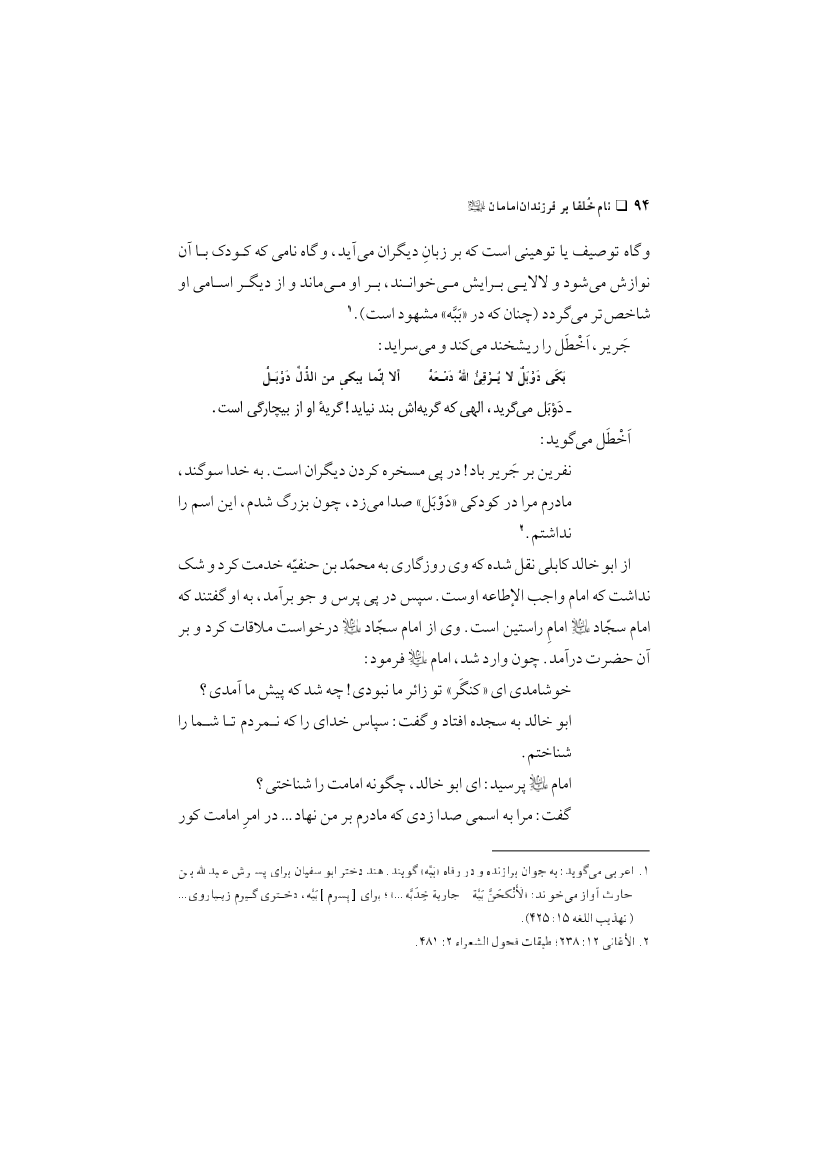 ۹۴ ❑ نام خُلفا بر فرزندان امامان ﷺ
و گاه توصیف یا توهینی است که بر زبانِ دیگران می‌آید، و گاه نامی که کـودک بـا آن
نوازش می‌شود و لالایـی بـرایش مـی‌خوانـند، بـر او مـی‌ماند و از دیگـر اسـامی او
شاخص‌تر می‌گردد (چنان که در «بَبَّه» مشهود است).۱
جَریر، اَخْطَل را ریشخند می‌کند و می‌سراید:
بَکَی دَوْبَلٌ لا یُـرْقِئُ اللهُ دَمْـعَهُ ألا إنّما یبکي من الذُلّ دَوْبَـلُ
ـ دَوْبَل می‌گرید، الهی که گریه‌اش بند نیاید! گریهٔ او از بیچارگی است.
اَخْطَل می‌گوید:
نفرین بر جَریر باد! در پی مسخره کردن دیگران است. به خدا سوگند،
مادرم مرا در کودکی «دَوْبَل» صدا می‌زد، چون بزرگ شدم، این اسم را
نداشتم.۲
از ابو خالد کابلی نقل شده که وی روزگاری به محمّد بن حنفیّه خدمت کرد و شک
نداشت که امام واجب الإطاعه اوست. سپس در پی پرس و جو برآمد، به او گفتند که
امام سجّاد علیه‌السلام امامِ راستین است. وی از امام سجّاد علیه‌السلام درخواست ملاقات کرد و بر
آن حضرت درآمد. چون وارد شد، امام علیه‌السلام فرمود:
خوشامدی ای «کنگَر» تو زائر ما نبودی! چه شد که پیش ما آمدی؟
ابو خالد به سجده افتاد و گفت: سپاس خدای را که نـمردم تـا شـما را
شناختم.
امام علیه‌السلام پرسید: ای ابو خالد، چگونه امامت را شناختی؟
گفت: مرا به اسمی صدا زدی که مادرم بر من نهاد... در امرِ امامت کور
۱. اعرابی می‌گوید: به جوان برازنده و در رفاه «بَبَّه» گویند. هند دختر ابو سفیان برای پسرش عبدالله بن
حارث آواز می‌خواند: «لَأُنْکِحَنَّ بَبَّة جاریة خِدَبَّه ...»؛ برای [پسرم] بَبَّه، دختری گیرم زیباروی...
(تهذیب اللغه ۱۵: ۴۲۵).
۲. الأغانی ۱۲: ۲۳۸؛ طبقات فحول الشعراء ۲: ۴۸۱.